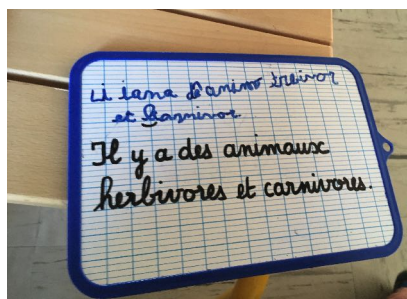 Li iana dé animo treivor
et Carnivor
Il y a des animaux
herbivores et carnivores.